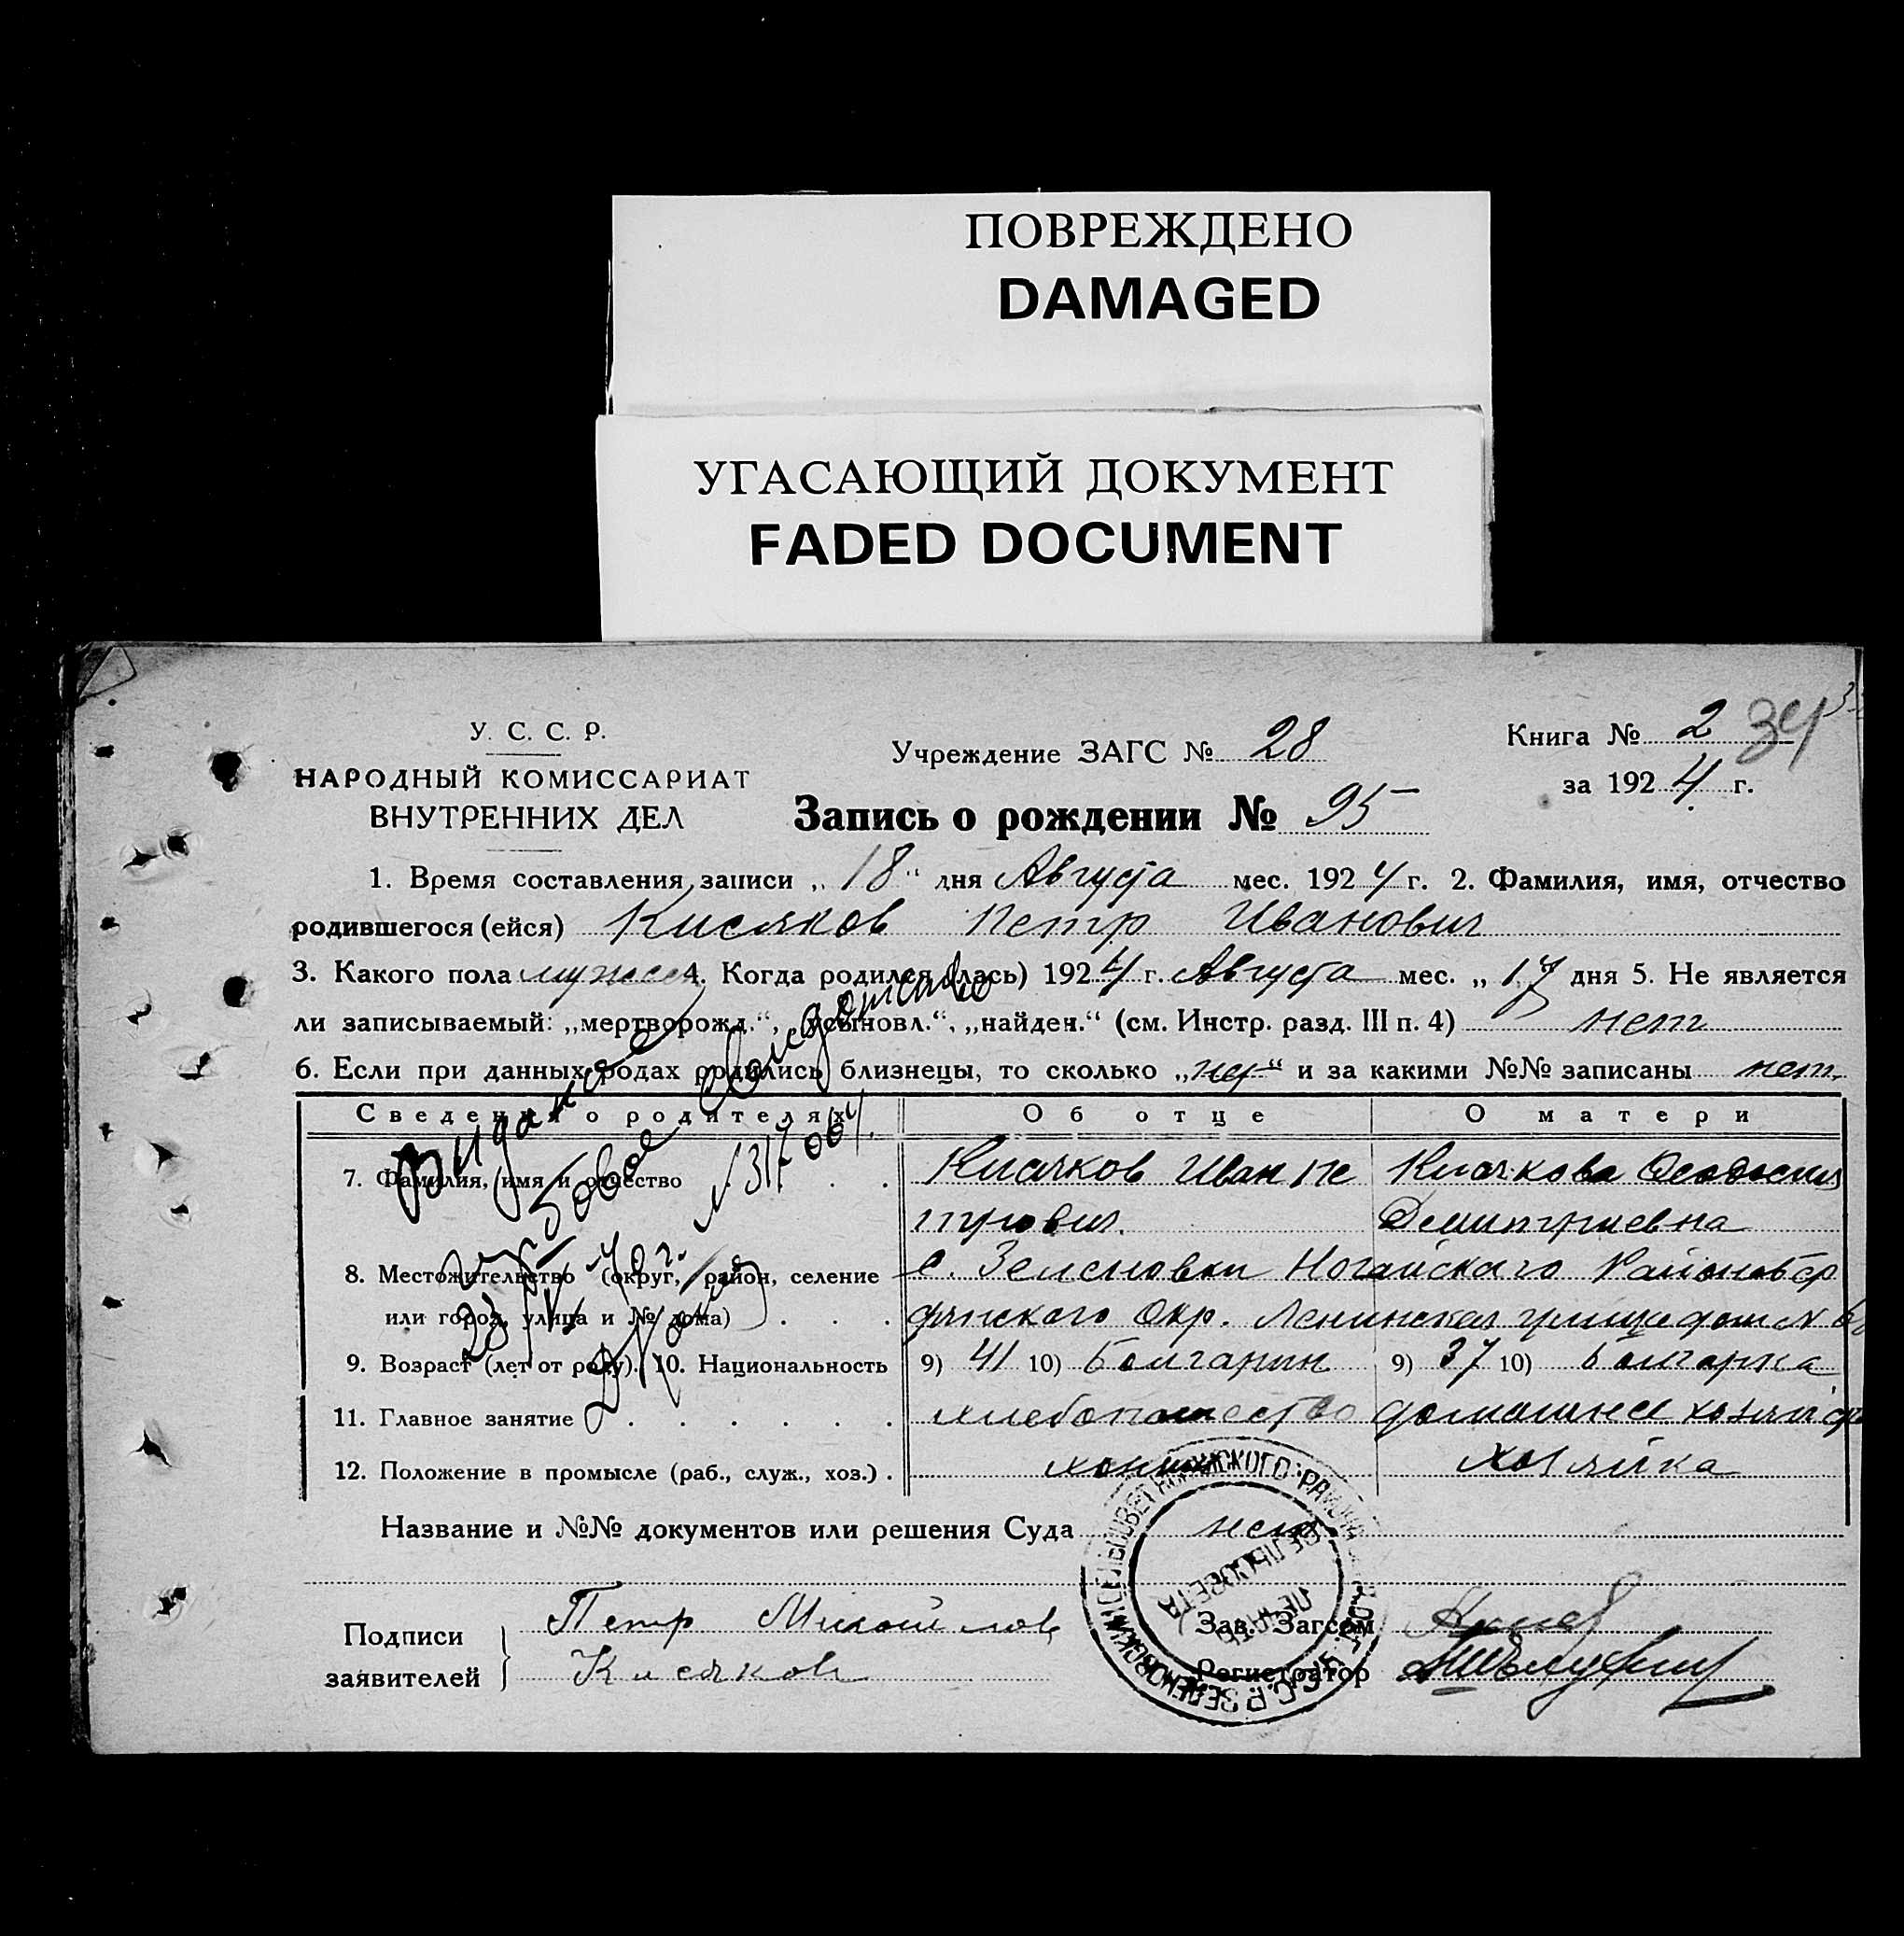 ПОВРЕЖДЕНО
DAMAGED
УГАСАЮЩИЙ ДОКУМЕНТ
FADED DOCUMENT
У. С. С. Р.
НАРОДНЫЙ КОМИССАРИАТ
ВНУТРЕННИХ ДЕЛ
Учреждение ЗАГС № 28
Книга № 2 34
за 1924 г.
Запись о рождении № 95
1. Время составления записи „18“ дня Августа мес. 1924 г. 2. Фамилия, имя, отчество
родившегося (ейся) Кисяков Петр Иванович
3. Какого пола мужск 4. Когда родился (лась) 1924 г. Августа мес. „17 дня 5. Не является
ли записываемый: „мертворожд.“, „усыновл.“, „найден.“ (см. Инстр. разд. III п. 4) нет
6. Если при данных родах родились близнецы, то сколько „нет“ и за какими №№ записаны нет
Сведения о родителях Об отце О матери
7. Фамилия, имя и отчество Кисяков Иван Пе Кисякова Феодосия
трович. Димитриевна
8. Местожительство (округ, район, селение с. Зеленовки Ногайского Района Бер
или город, улица и № дома) дянского Окр. Ленинская улица дом №
9. Возраст (лет от роду). 10. Национальность 9) 41 10) Болгарин 9) 37 10) Болгарка
11. Главное занятие хлебопашество домашнее
12. Положение в промысле (раб., служ., хоз.) . хозяйка
Название и №№ документов или решения Суда нет
Подписи заявителей Петр
Кисяков
Зав. Загсом
Регистратор
свидетельство
№ 317001
ПЕЧАТЬ
СЕЛЬСОВЕТА